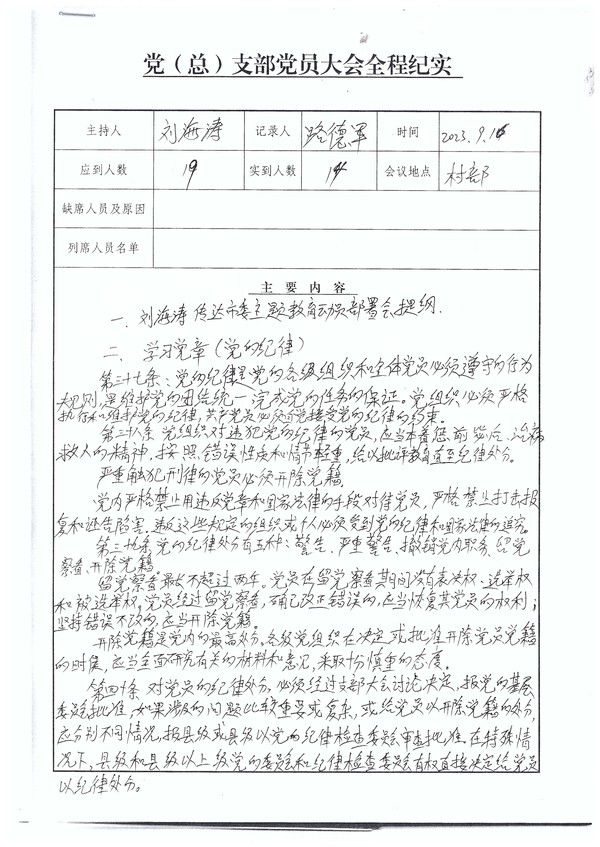 党（总）支部党员大会全程纪实
主持人 刘海涛 记录人 路德军 时间 2023.9.16
应到人数 19 实到人数 14 会议地点 村部
缺席人员及原因
列席人员名单
主 要 内 容
一、刘海涛传达市委主题教育动员部署会提纲.
二、学习党章（党的纪律）
第三十七条：党的纪律是党的各级组织和全体党员必须遵守的行为
规则,是维护党的团结统一完成党的任务的保证。党组织必须严格
执行和维护党的纪律,共产党员必须自觉接受党的纪律的约束。
第三十八条 党组织对违犯党的纪律的党员,应当本着惩前毖后、治病
救人的精神,按照错误性质和情节轻重,给以批评教育直至纪律处分。
严重触犯刑律的党员必须开除党籍
党内严格禁止用违反党章和国家法律的手段对待党员,严格禁止打击报
复和诬告陷害.违反这些规定的组织或个人必须受到党的纪律和国家法律的追究。
第三十九条 党的纪律处分有五种：警告、严重警告、撤销党内职务、留党
察看、开除党籍
留党察看最长不超过两年。党员在留党察看期间没有表决权、选举权
和被选举权。党员经过留党察看,确已改正错误的,应当恢复其党员的权利；
坚持错误不改的,应当开除党籍。
开除党籍是党内的最高处分。各级党组织在决定或批准开除党员党籍
的时候,应当全面研究有关的材料和意见,采取十分慎重的态度。
第四十条 对党员的纪律处分,必须经过支部大会讨论决定,报党的基层
委员会批准,如果涉及的问题比较重要或复杂,或给党员以开除党籍的处分,
应分别不同情况,报县级或县级以党的纪律检查委员会审查批准.在特殊情
况下,县级和县级以上级党的委员会和纪律检查委员会有权直接决定给党员
以纪律处分。